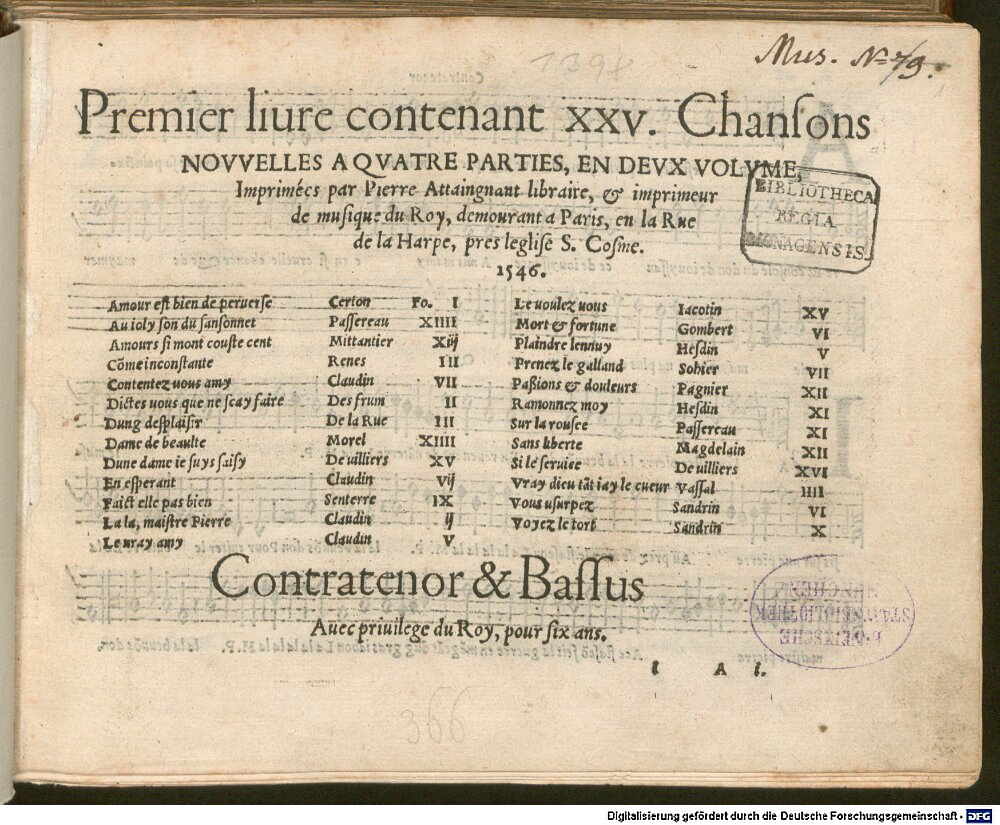 Mus. No 79.
1398
Premier liure contenant XXV. Chanſons
NOVVELLES A QVATRE PARTIES, EN DEVX VOLVME,
Imprimées par Pierre Attaingnant libraire, & imprimeur
de muſique du Roy, demourant a Paris, en la Rue
de la Harpe, pres legliſe S. Coſme.
1546.
BIBLIOTHECA
REGIA
MONACENSIS.
Amour eſt bien de peruerſe Certon Fo. I
Au ioly ſon du ſanſonnet Paſſereau XIIII
Amours ſi mont couſte cent Mittantier Xij
Cõme inconſtante Renes III
Contentez uous amy Claudin VII
Dictes uous que ne ſcay faire Des frum II
Dung deſplaiſir De la Rue III
Dame de beaulte Morel XIIII
Dune dame ie ſuys ſaiſy De uilliers XV
En eſperant Claudin Vij
Faict elle pas bien Senterre IX
La la, maiſtre Pierre Claudin ij
Le uray amy Claudin V
Le uoulez uous Iacotin XV
Mort & fortune Gombert VI
Plaindre lennuy Heſdin V
Prenez le galland Sohier VII
Paßions & douleurs Pagnier XII
Ramonnez moy Heſdin XI
Sur la rouſee Paſſereau XI
Sans liberte Magdelain XII
Si le ſeruice De uilliers XVI
Vray dieu tãt iay le cueur Vaſſal IIII
Vous uſurpez Sandrin VI
Voyez le tort Sandrin X
Contratenor & Baſſus
Auec priuilege du Roy, pour ſix ans.
I A i.
BAYERISCHE
STAATSBIBLIOTHEK
MÜNCHEN
366
Digitalisierung gefördert durch die Deutsche Forschungsgemeinschaft - DFG